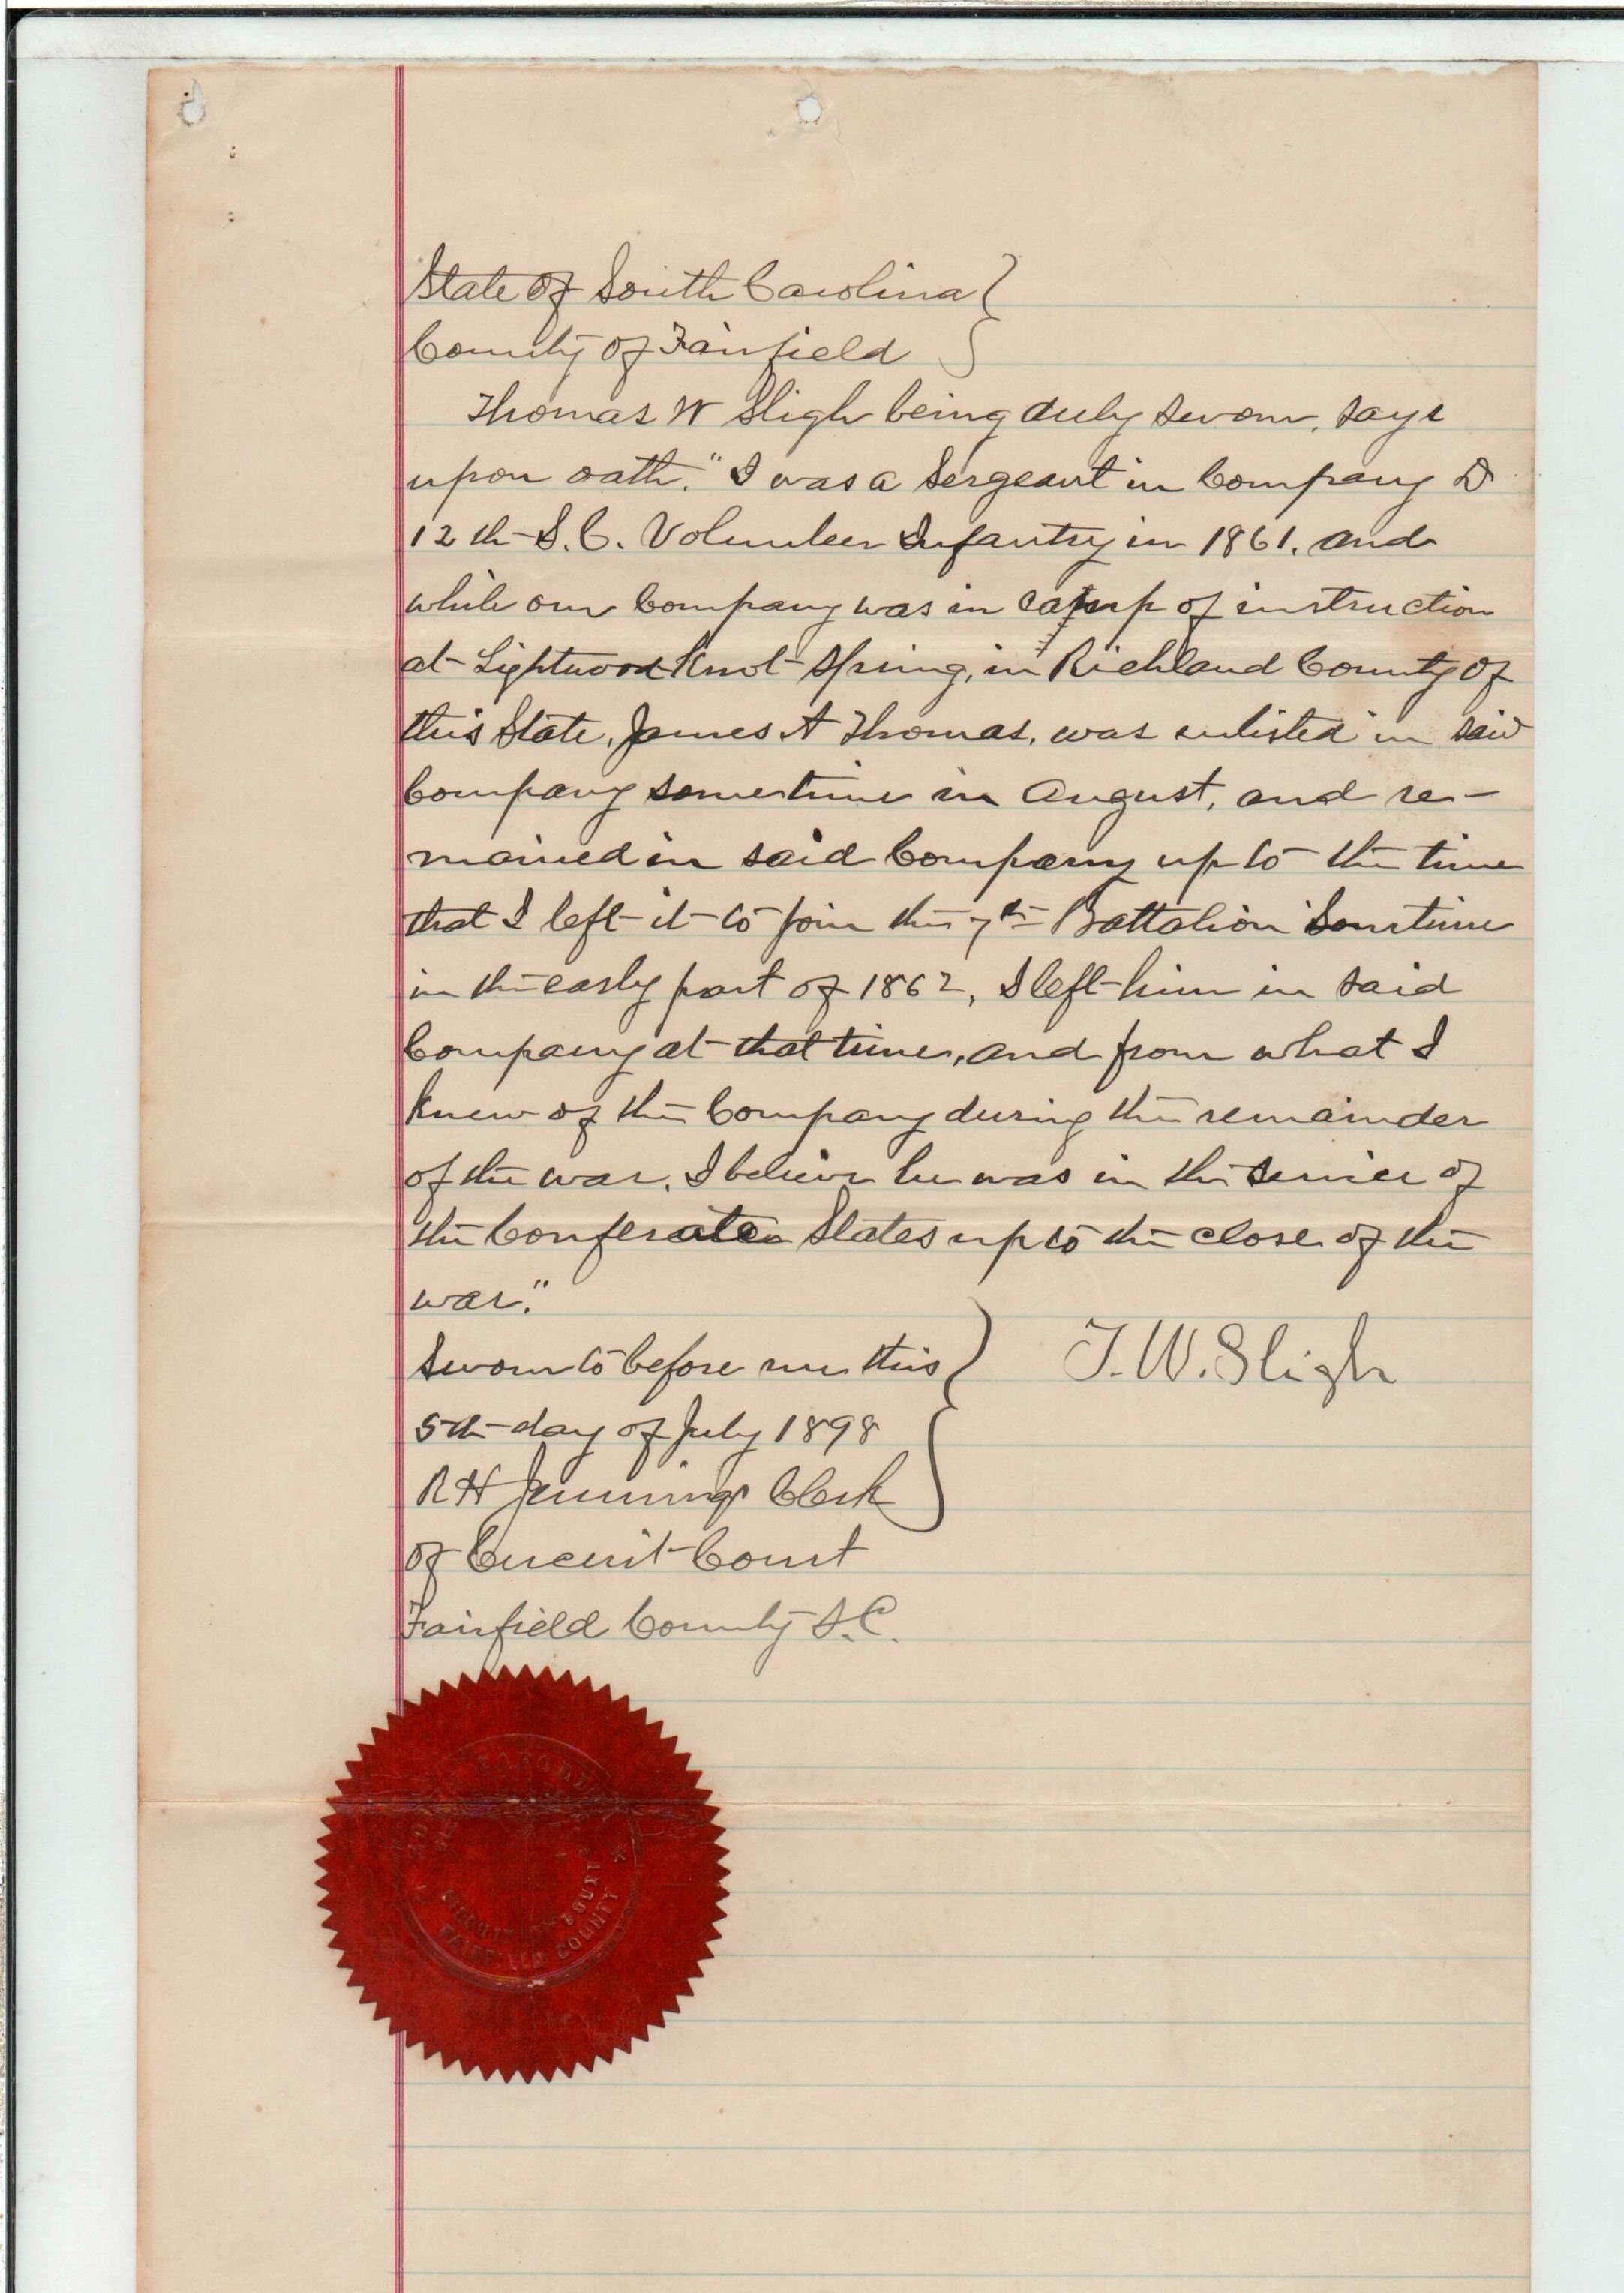 State of South Carolina }
County of Fairfield }
Thomas W Sligh being duly sworn, says
upon oath. "I was a Sergeant in Company D
12th S.C. Volunteer Infantry in 1861. and
while our Company was in camp of instruction
at Lightwood Knot Spring, in Richland County of
this State, James A Thomas, was enlisted in said
Company sometime in August, and re-
mained in said Company up to the time
that I left it to join the 7th Battalion Sometime
in the early part of 1862, I left him in said
Company at that time, and from what I
knew of the Company during the remainder
of the war, I believe he was in the service of
the Conferate States up to the close of the
war."
Sworn to before me this } T. W. Sligh
5th day of July 1898
R H Jennings Clerk
of Circuit Court
Fairfield County S.C.
CIRCUIT COURT
FAIRFIELD COUNTY